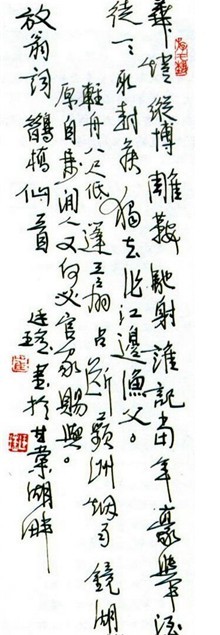 華燈縱博雕鞍馳射誰記当年豪舉酒
徒一一取封侯獨去作江邊漁父。
輕舟八尺低篷三扇占断蘋洲烟雨鏡湖
原自属閒人又何必官家賜與。
放翁詞鵲橋仙一首 書於甘棠湖畔